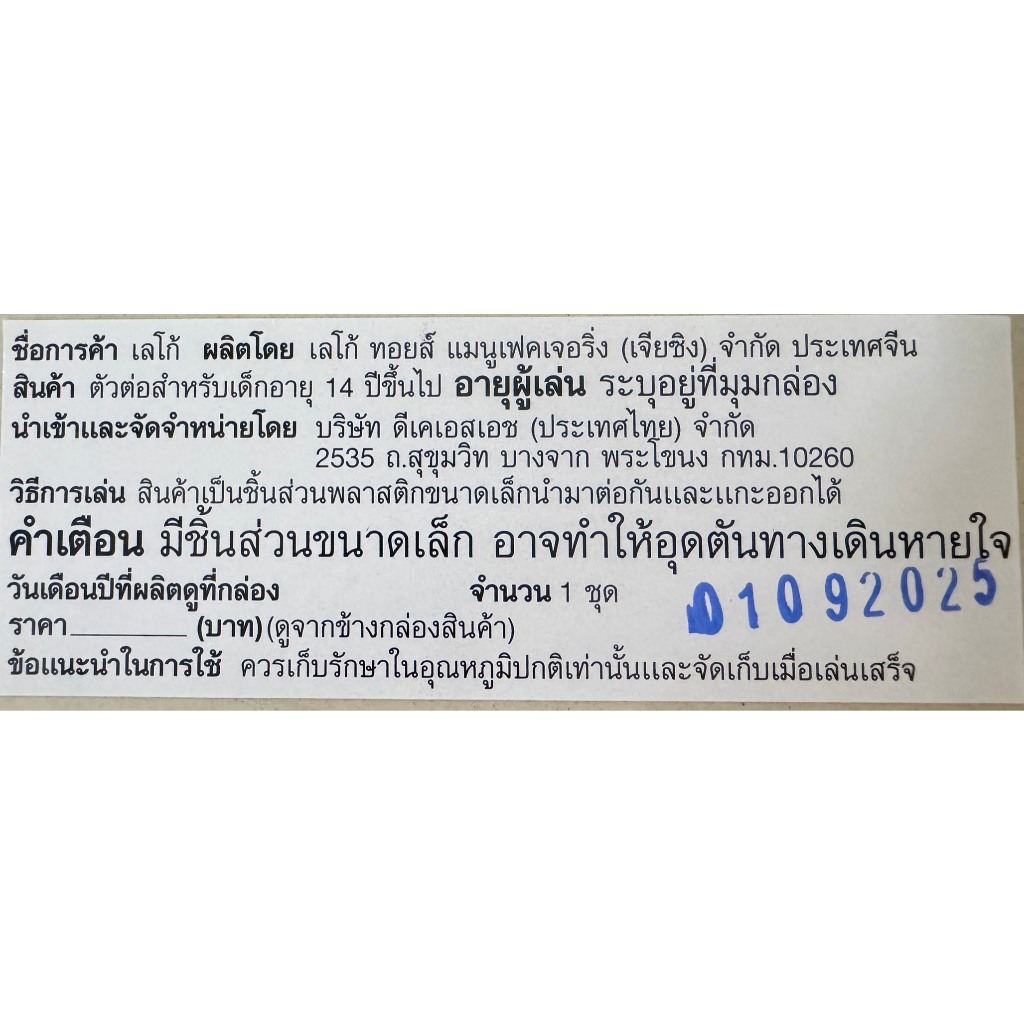 ชื่อการค้า เลโก้ ผลิตโดย เลโก้ ทอยส์ แมนูเฟคเจอริ่ง (เจียซิง) จำกัด ประเทศจีน
สินค้า ตัวต่อสำหรับเด็กอายุ 14 ปีขึ้นไป อายุผู้เล่น ระบุอยู่ที่มุมกล่อง
นำเข้าและจัดจำหน่ายโดย บริษัท ดีเคเอสเอช (ประเทศไทย) จำกัด
2535 ถ.สุขุมวิท บางจาก พระโขนง กทม.10260
วิธีการเล่น สินค้าเป็นชิ้นส่วนพลาสติกขนาดเล็กนำมาต่อกันและแกะออกได้
คำเตือน มีชิ้นส่วนขนาดเล็ก อาจทำให้อุดตันทางเดินหายใจ
วันเดือนปีที่ผลิตดูที่กล่อง จำนวน 1 ชุด 01092025
ราคา________ (บาท)(ดูจากข้างกล่องสินค้า)
ข้อแนะนำในการใช้ ควรเก็บรักษาในอุณหภูมิปกติเท่านั้นและจัดเก็บเมื่อเล่นเสร็จ